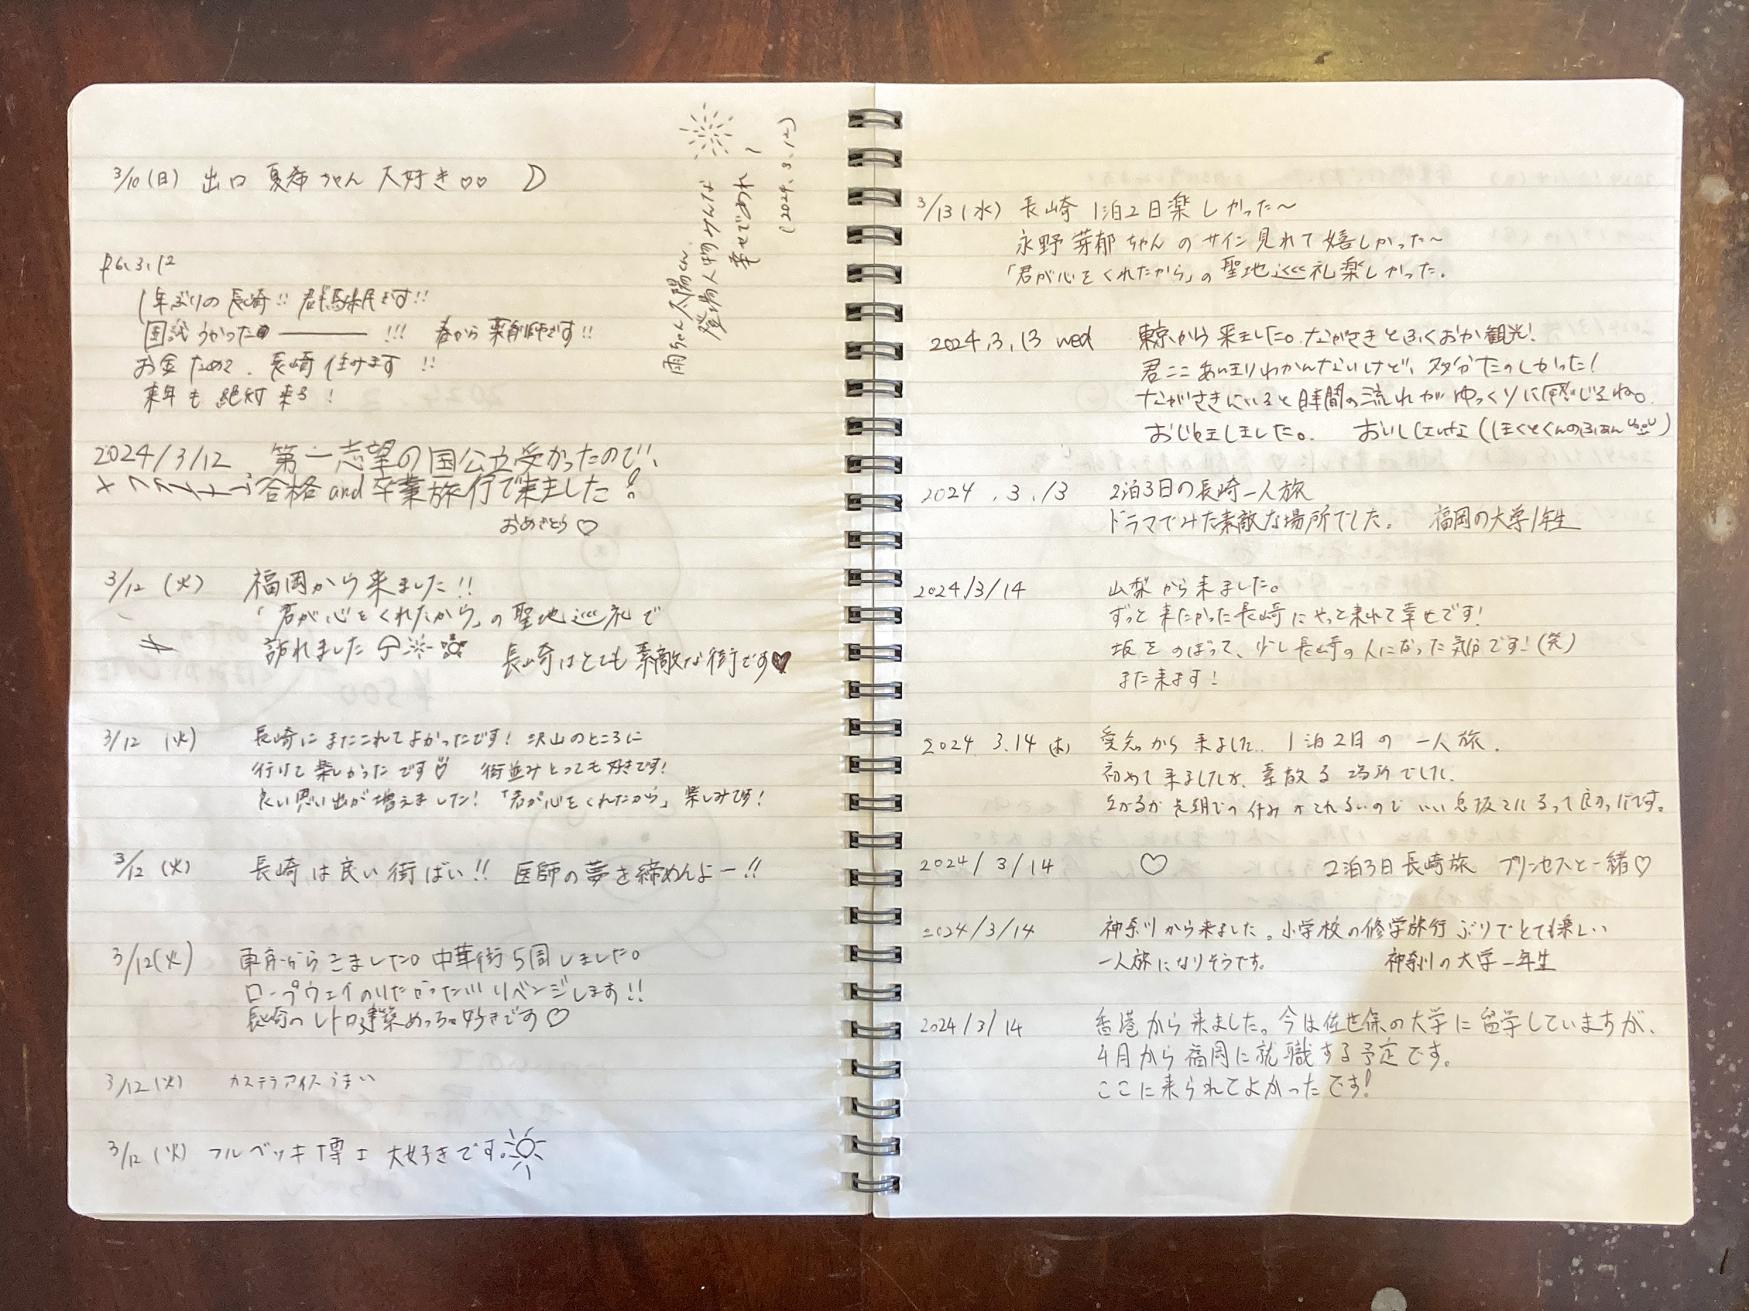 3/10(日) 出口 夏希ちゃん 大好き♡♡
雨ちゃん太陽くん
登場人物みんな
幸せであれ
(2024.3.12)
R6.3.12
1年ぶりの長崎!! 群馬県民です!!
国試うかった ――― !!! 春から薬剤師です!!
お金ためて、長崎住みます!!
来年も絶対来る!
2024/3/12 第一志望の国公立受かったので、
合格and卒業旅行で来ました!
おめでとう♡
3/12 (火) 福岡から来ました!!
「君が心をくれたから」の聖地巡礼で
訪れました 長崎はとても素敵な街です♥
3/12 (火) 長崎にまたこれてよかったです! 沢山のところに
行けて楽しかったです 街並みとっても好きです!
良い思い出が増えました! 「君が心をくれたから」楽しみです!
3/12 (火) 長崎は良い街ばい!! 医師の夢を締めんよー!!
3/12(火) 東京からきました。中華街5周しました。
ロープウェイのりたかった!!! リベンジします!!
長崎のレトロ建築めっちゃ好きです♡
3/12(火) カステラアイスうまい
3/12(火) フルベッキ博士 大好きです。
3/13(水) 長崎 1泊2日楽しかった〜
永野芽郁ちゃんのサイン見れて嬉しかった〜
「君が心をくれたから」の聖地巡礼楽しかった.
2024.3.13 wed 東京から来ました。ながさきとふくおか観光!
君ここあんまりわかんないけど、多分たのしかった!
ながさきにいると時間の流れがゆっくりに感じるね。
おじゃましました。
2024.3.13 2泊3日の長崎一人旅
ドラマでみた素敵な場所でした. 福岡の大学1年生
2024/3/14 山梨から来ました。
ずっと来たかった長崎にやっと来れて幸せです!
坂をのぼって、少し長崎の人になった気分です!(笑)
また来ます!
2024 3.14 (木) 愛知から来ました.. 1泊2日の一人旅.
初めて来ましたが、素敵な場所でした.
2024/3/14 ♡ 2泊3日長崎旅 プリンセスと一緒♡
2024/3/14 神奈川から来ました。小学校の修学旅行ぶりでとても楽しい
一人旅になりそうです。 神奈川の大学一年生
2024/3/14 香港から来ました。今は佐世保の大学に留学していますが、
4月から福岡に就職する予定です。
ここに来られてよかったです!